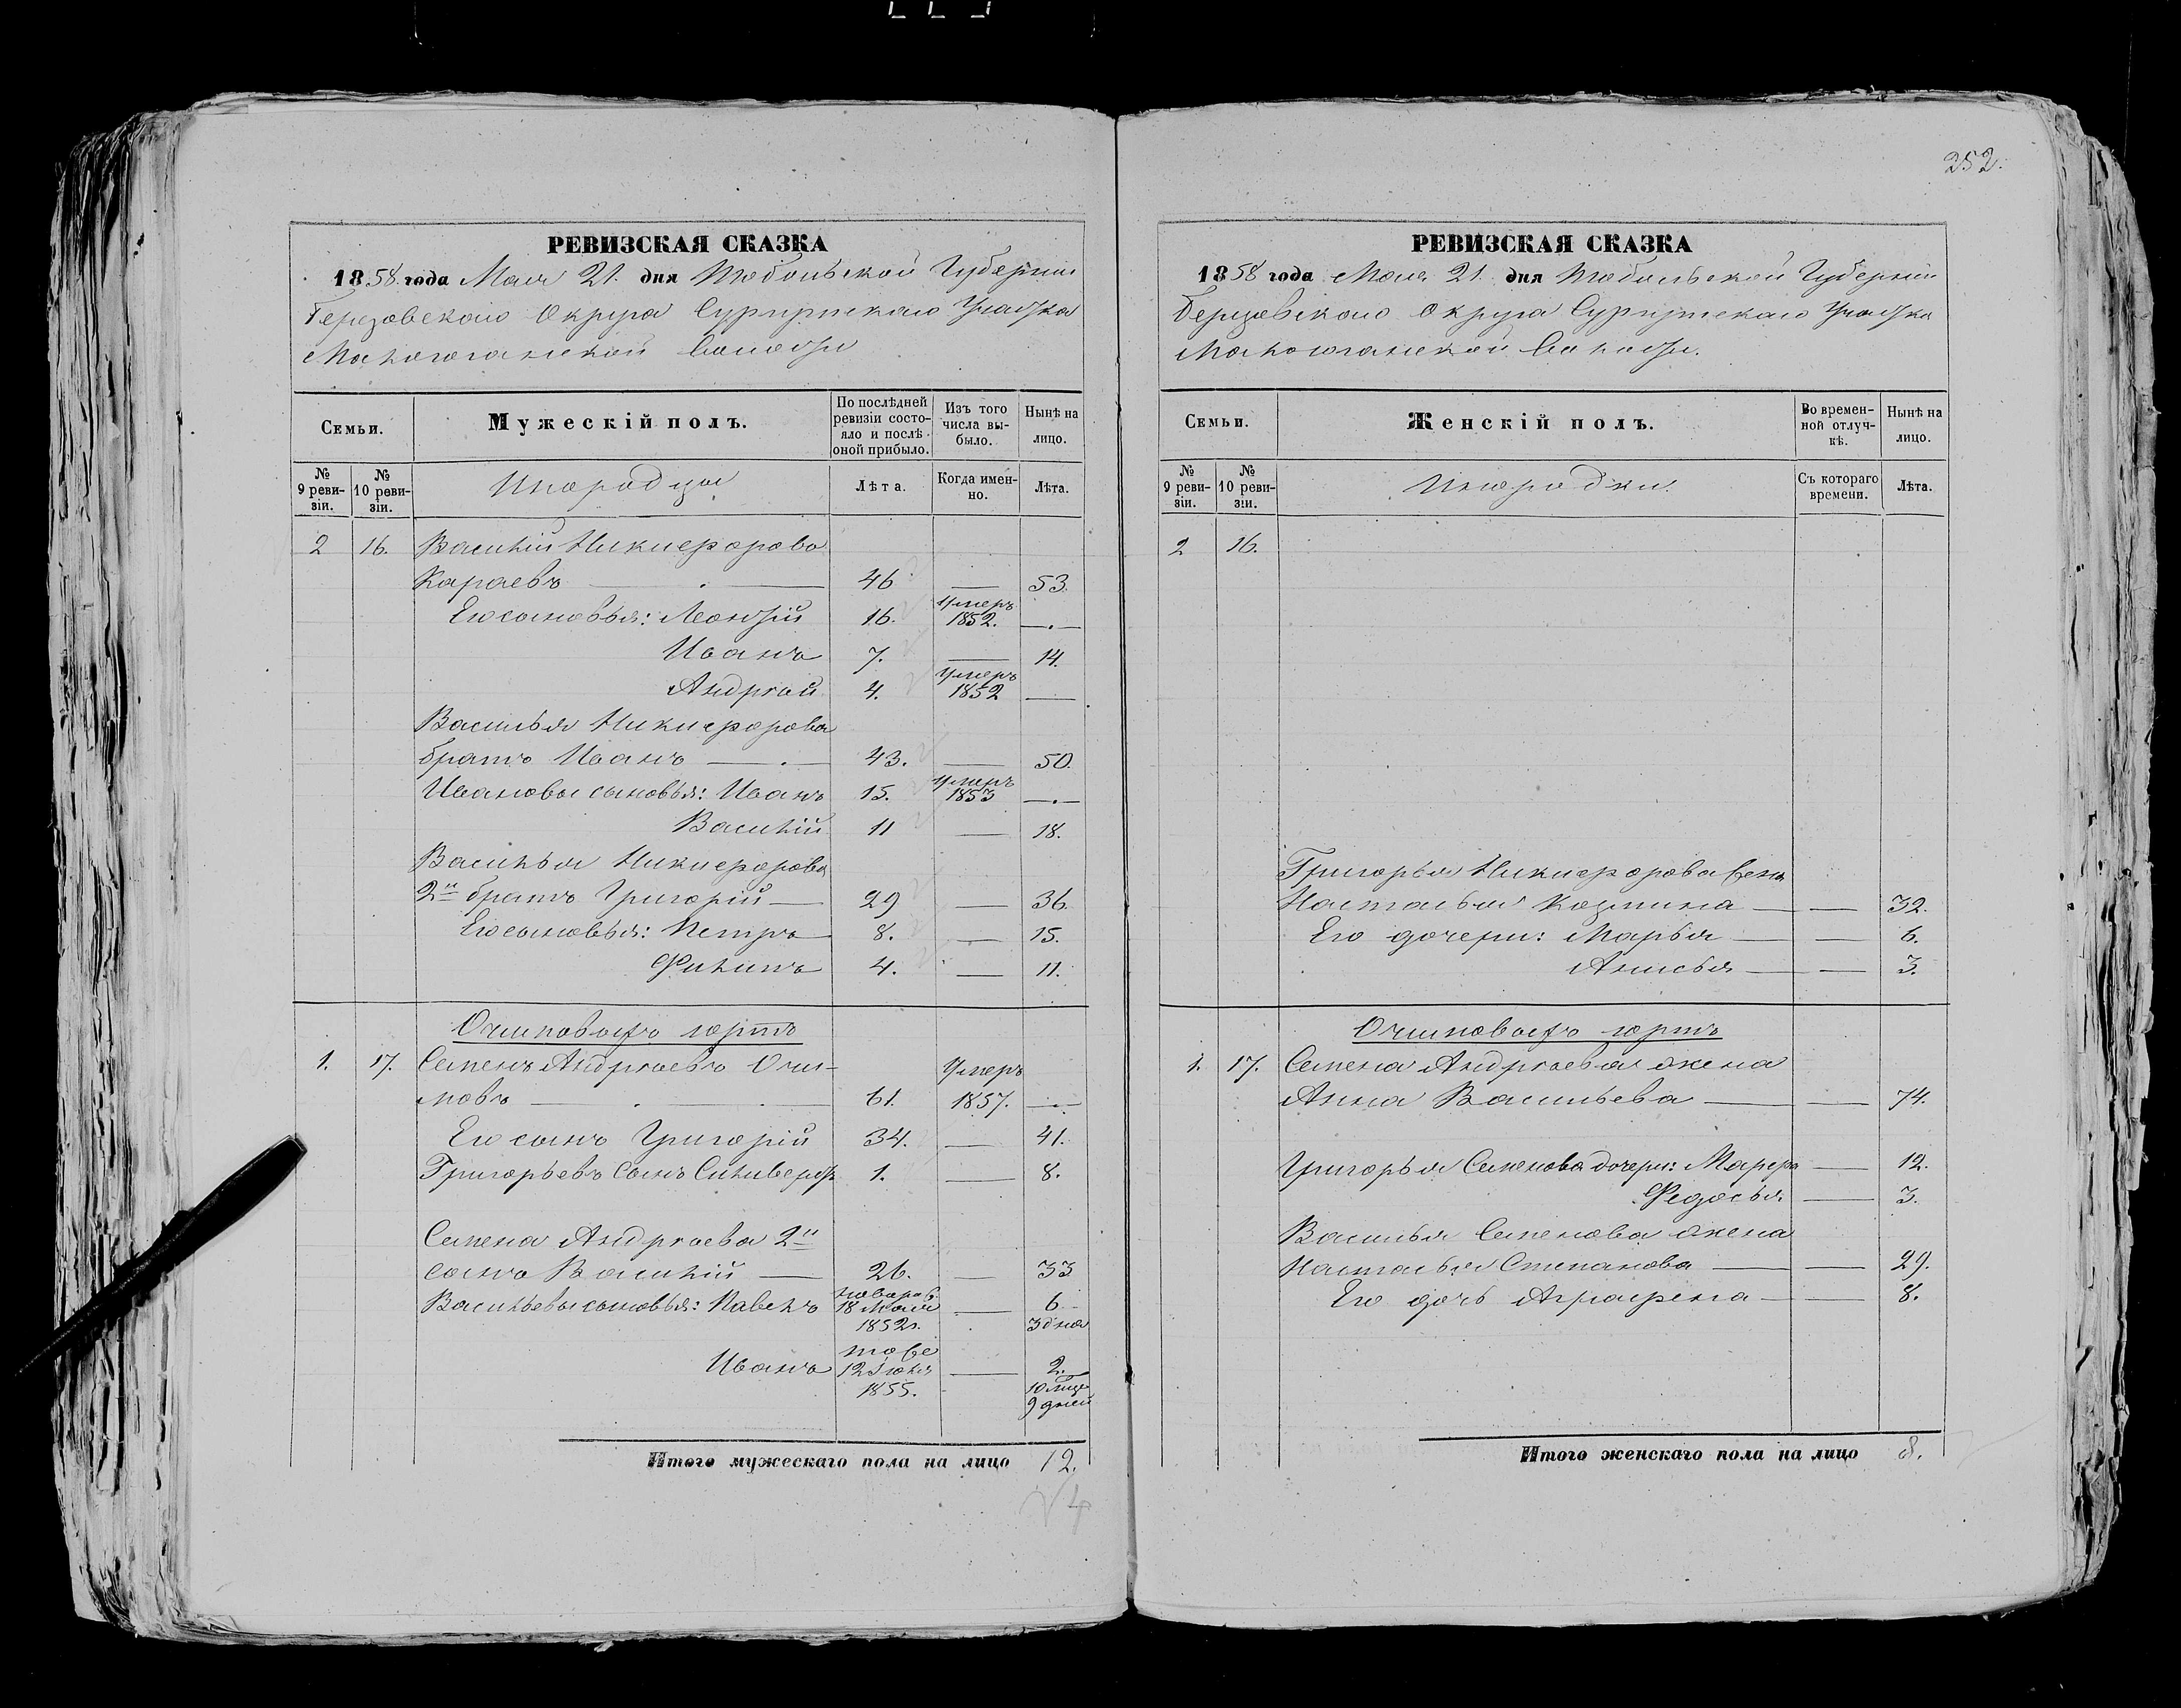 252.
РЕВИЗСКАЯ СКАЗКА
1858 года Мая 21. дня Тобольской Губернии
Березовского Округа Сургутскаго Участка
Малоюганской Волости
Семьи.
Мужескій полъ.
По послѣдней ревизіи состояло и послѣ оной прибыло.
Изъ того числа выбыло.
Нынѣ на лицо.
№ 9 ревизіи.
№ 10 ревизіи.
Инородцы
Лѣта.
Когда именно.
Лѣта.
2 16. Василій Никифорова
Караевъ — 46 — 53.
Его сыновья: Леонтій 16. Умеръ 1852. —
Иванъ 7. — 14.
Андрей 4. Умеръ 1852 —
Василья Никифорова
братъ Иванъ — 43. — 50.
Ивановы сыновья: Иванъ 15. Умеръ 1853 —
Василій 11 — 18.
Василья Никифорова
2й братъ Григорій — 29 — 36.
Его сыновья: Петръ 8. — 15.
Филипъ 4. — 11.
Очимовыхъ юртъ
1. 17. Семенъ Андреевъ Очи-
мовъ — 61. Умеръ 1857. —
Его сынъ Григорій 34. — 41.
Григорьевъ сынъ Силиверстъ 1. — 8.
Семена Андреева 2й
сынъ Василій — 26. — 33
Васильевы сыновья: Павелъ новорож. 18 Мая 1852г. — 6. 3 дня
Иванъ тоже 12 Іюля 1855. — 2. 10 мцв 9 дней
Итого мужескаго пола на лицо 12.
РЕВИЗСКАЯ СКАЗКА
1858 года Мая 21. дня Тобольской Губерніи
Березовскаго Округа Сургутскаго Участка
Малоюганской Волости.
Семьи.
Женскій полъ.
Во временной отлучкѣ.
Нынѣ на лицо.
№ 9 ревизіи.
№ 10 ревизіи.
Инородки.
Съ котораго времени.
Лѣта.
2 16.
Григорья Никифорова жена
Настасья Козмина — — 32.
Его дочери: Марья — — 6.
Анисья — — 3.
Очимовыхъ юртъ
1. 17. Семена Андреева жена
Анна Васильева — — 74.
Григорья Семенова дочери: Марфа — 12.
Федосья — 3.
Василья Семенова жена
Настасья Степанова — — 29.
Его дочь Аграфена — — 8.
Итого женскаго пола на лицо 8.